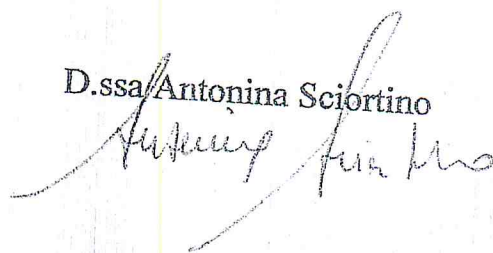 D.ssa Antonina Sciortino
Antonina Sciortino